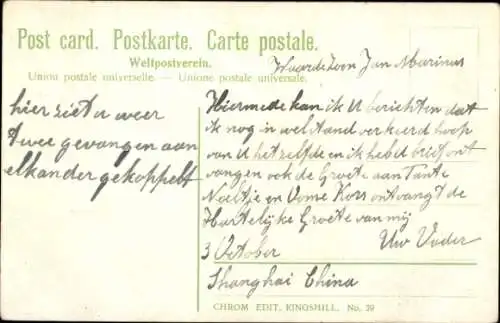 Post card. Postkarte. Carte postale.
Weltpostverein.
Union postale universelle. — Unione postale universale.
Waarde Zoon Jan Marinus
hier ziet u weer
twee gevangen aan
elkander gekoppelt
Hiermede kan ik U berichten dat
ik nog in welstand verkeerd hoop
van U hetzelfde en ik heb U brief ont
vangen ook de Groete aan Tante
Neeltje en Oome Kors ontvangt de
Hartelijke Groete van mij
3 October Uw Vader
Shanghai China
CHROM EDIT. KINGSHILL. No. 39